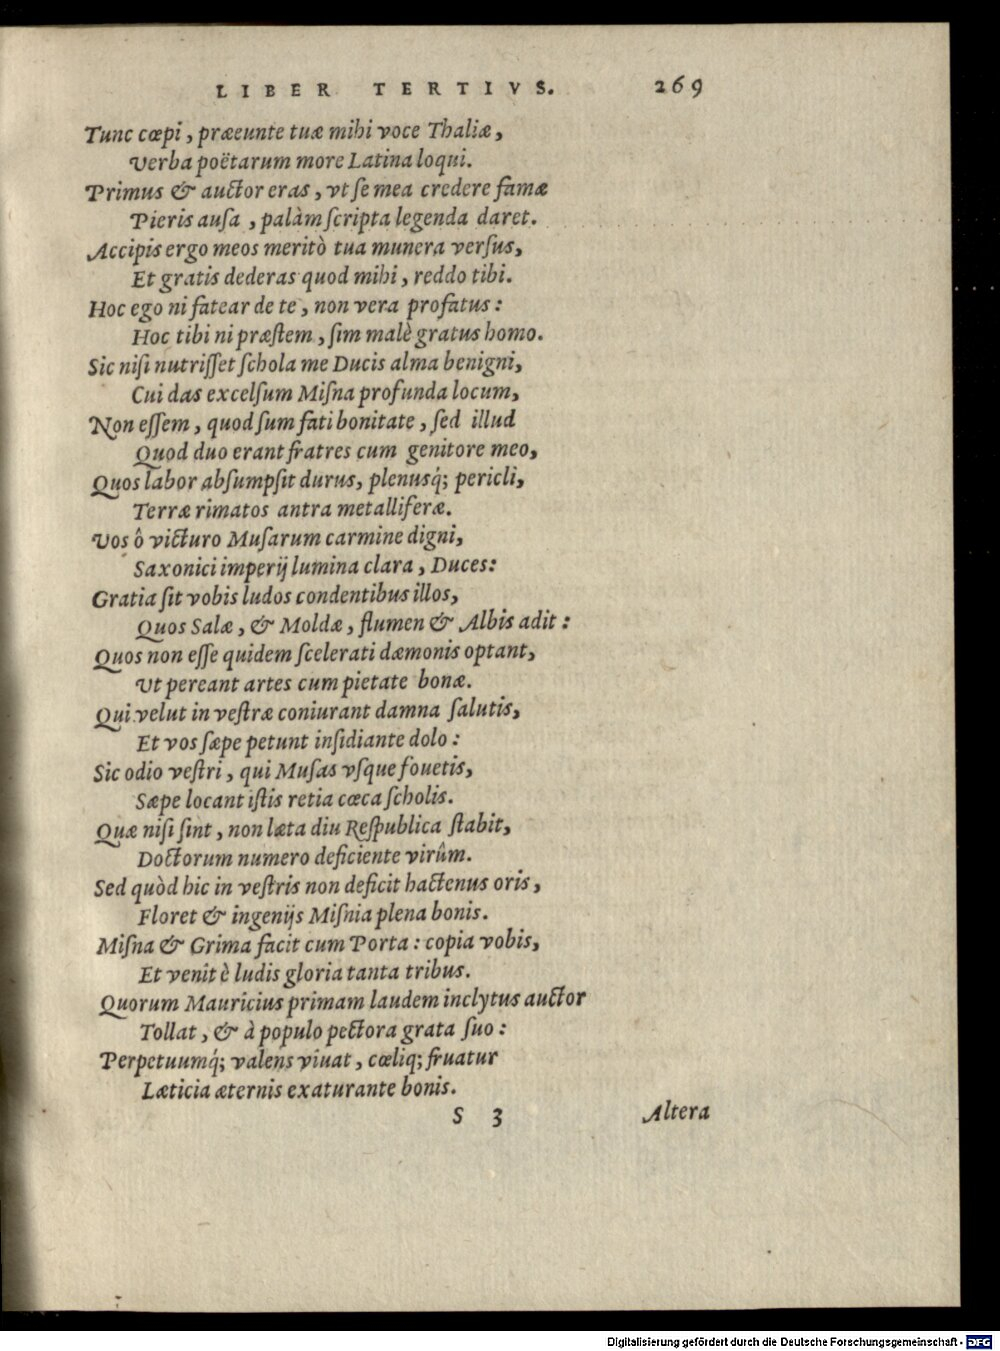 LIBER TERTIVS. 269
Tunc cœpi, præeunte tuæ mihi voce Thaliæ,
Verba poëtarum more Latina loqui.
Primus & auctor eras, vt ſe mea credere famæ
Pieris auſa, palàm ſcripta legenda daret.
Accipis ergo meos meritò tua munera verſus,
Et gratis dederas quod mihi, reddo tibi.
Hoc ego ni fatear de te, non vera profatus:
Hoc tibi ni præſtem, ſim malè gratus homo.
Sic niſi nutriſſet ſchola me Ducis alma benigni,
Cui das excelſum Miſna profunda locum,
Non eſſem, quod ſum fati bonitate, ſed illud
Quod duo erant fratres cum genitore meo,
Quos labor abſumpſit durus, plenusq́; pericli,
Terræ rimatos antra metalliferæ.
Vos ô victuro Muſarum carmine digni,
Saxonici imperij lumina clara, Duces:
Gratia ſit vobis ludos condentibus illos,
Quos Salæ, & Moldæ, flumen & Albis adit:
Quos non eſſe quidem ſcelerati dæmonis optant,
Vt pereant artes cum pietate bonæ.
Qui velut in veſtræ coniurant damna ſalutis,
Et vos ſæpe petunt inſidiante dolo:
Sic odio veſtri, qui Muſas vſque fouetis,
Sæpe locant iſtis retia cœca ſcholis.
Quæ niſi ſint, non læta diu Reſpublica ſtabit,
Doctorum numero deficiente virûm.
Sed quòd hic in veſtris non deficit hactenus oris,
Floret & ingenijs Miſnia plena bonis.
Miſna & Grima facit cum Porta: copia vobis,
Et venit è ludis gloria tanta tribus.
Quorum Mauricius primam laudem inclytus auctor
Tollat, & à populo pectora grata ſuo:
Perpetuumq́; valens viuat, cœliq; fruatur
Læticia æternis exaturante bonis.
S 3 Altera
Digitalisierung gefördert durch die Deutsche Forschungsgemeinschaft - DFG